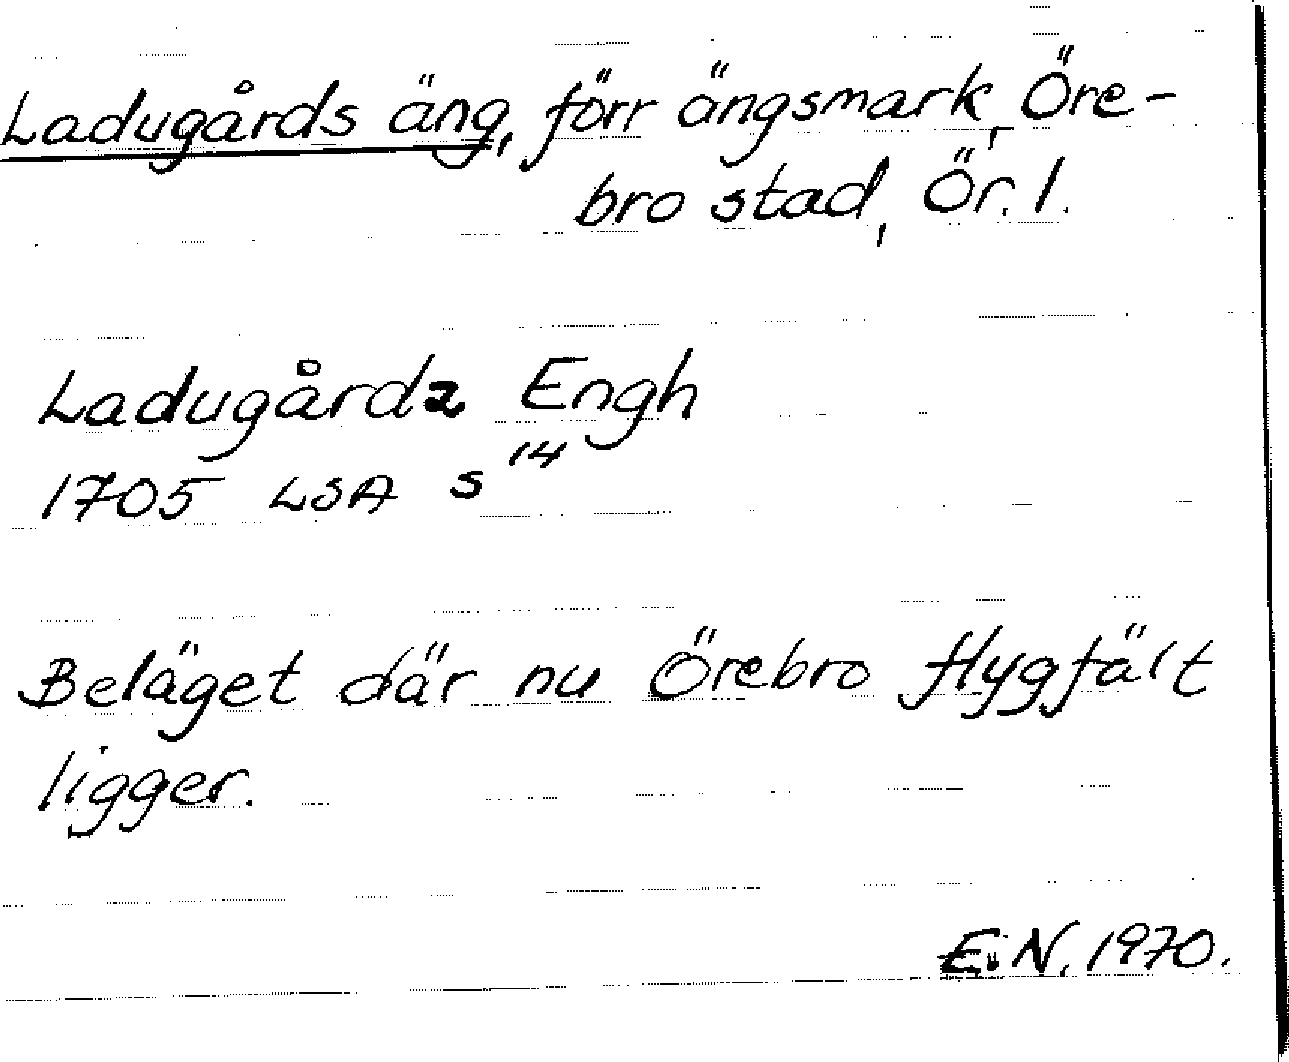 Ladugårds äng, förr ängsmark, Öre-
bro stad, Ör. l.
Ladugårdz Engh
1705 LSA s 14
Beläget där nu Örebro flygfält
ligger.
E. N. 1970.